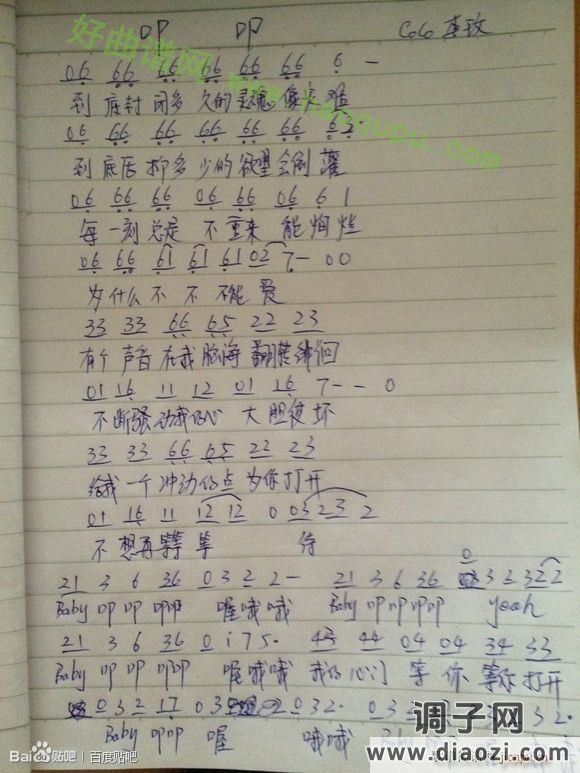 叩 叩 CoCo 李玟
06 66 66 66 66 66 6 -
到底封闭多久的灵魂像灾难
06 66 66 66 66 66 63·
到底压抑多少的欲望会倒灌
06 66 66 06 66 06 6 1
每一刻总是 不重来 能绚烂
06 66 61 61 61 02 7 - 00
为什么不 不 不能 爱
33 33 66 65 22 23
有个声音在我脑海翻转徘徊
01 16 11 12 01 16 7 - - 0
不断骚动我的心 大胆使坏
33 33 66 65 22 23
给我一个冲动的点为你打开
01 16 11 12 12 0 03 23 2
不想再等等 待
0
21 3 6 36 0 3 2 2 - 21 3 6 36 3 2 3 2 2
Baby 叩叩 叩叩 喔哦哦 Baby 叩叩叩叩 yeah
21 3 6 36 0 i 7 5· 44 44 04 04 34 33
Baby 叩叩 叩叩 喔哦哦 我的心门 等 你 等你打开
0 3 2 17 03 2 0 32· 0 3 2
Baby 叩叩 喔 哦哦 Baby
好曲谱网
Baidu贴吧 | 百度贴吧
调子网
www.diaozi.com